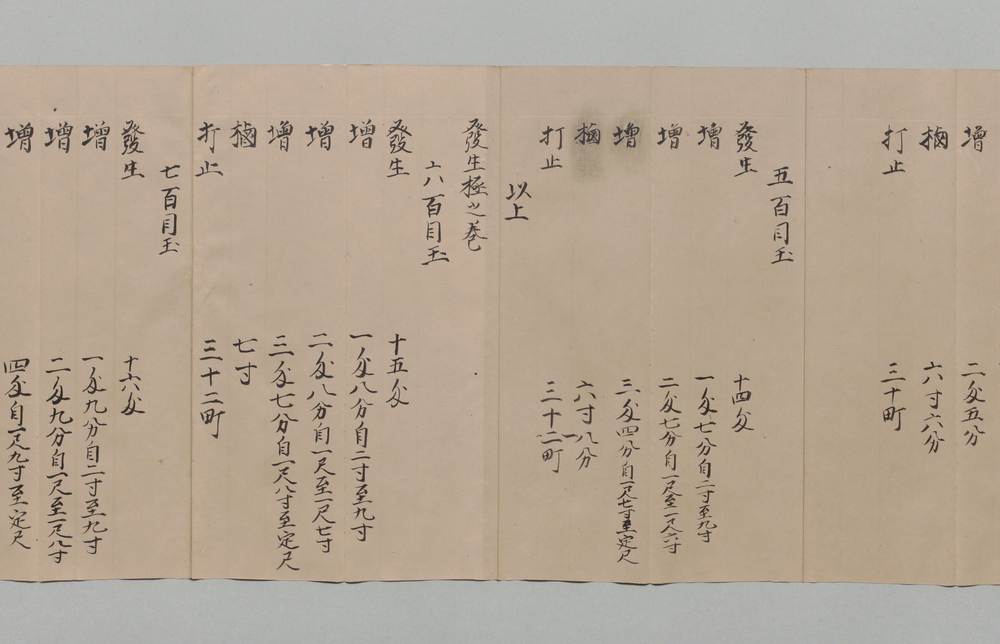 増 二匁五分
樐 六寸六分
打止 三十町
五百目玉
發生 十四匁
増 一匁七分自二寸至九寸
増 二匁七分自一尺至一尺六寸
増 三匁四分自一尺七寸至定尺
樐 六寸八分
打止 三十二町
以上
發生極之巻
六百目玉
發生 十五匁
増 一匁八分自二寸至九寸
増 二匁八分自一尺至一尺七寸
増 三匁七分自一尺八寸至定尺
樐 七寸
打止 三十二町
七百目玉
發生 十六匁
増 一匁九分自二寸至九寸
増 二匁九分自一尺至一尺八寸
増 四匁自一尺九寸至定尺